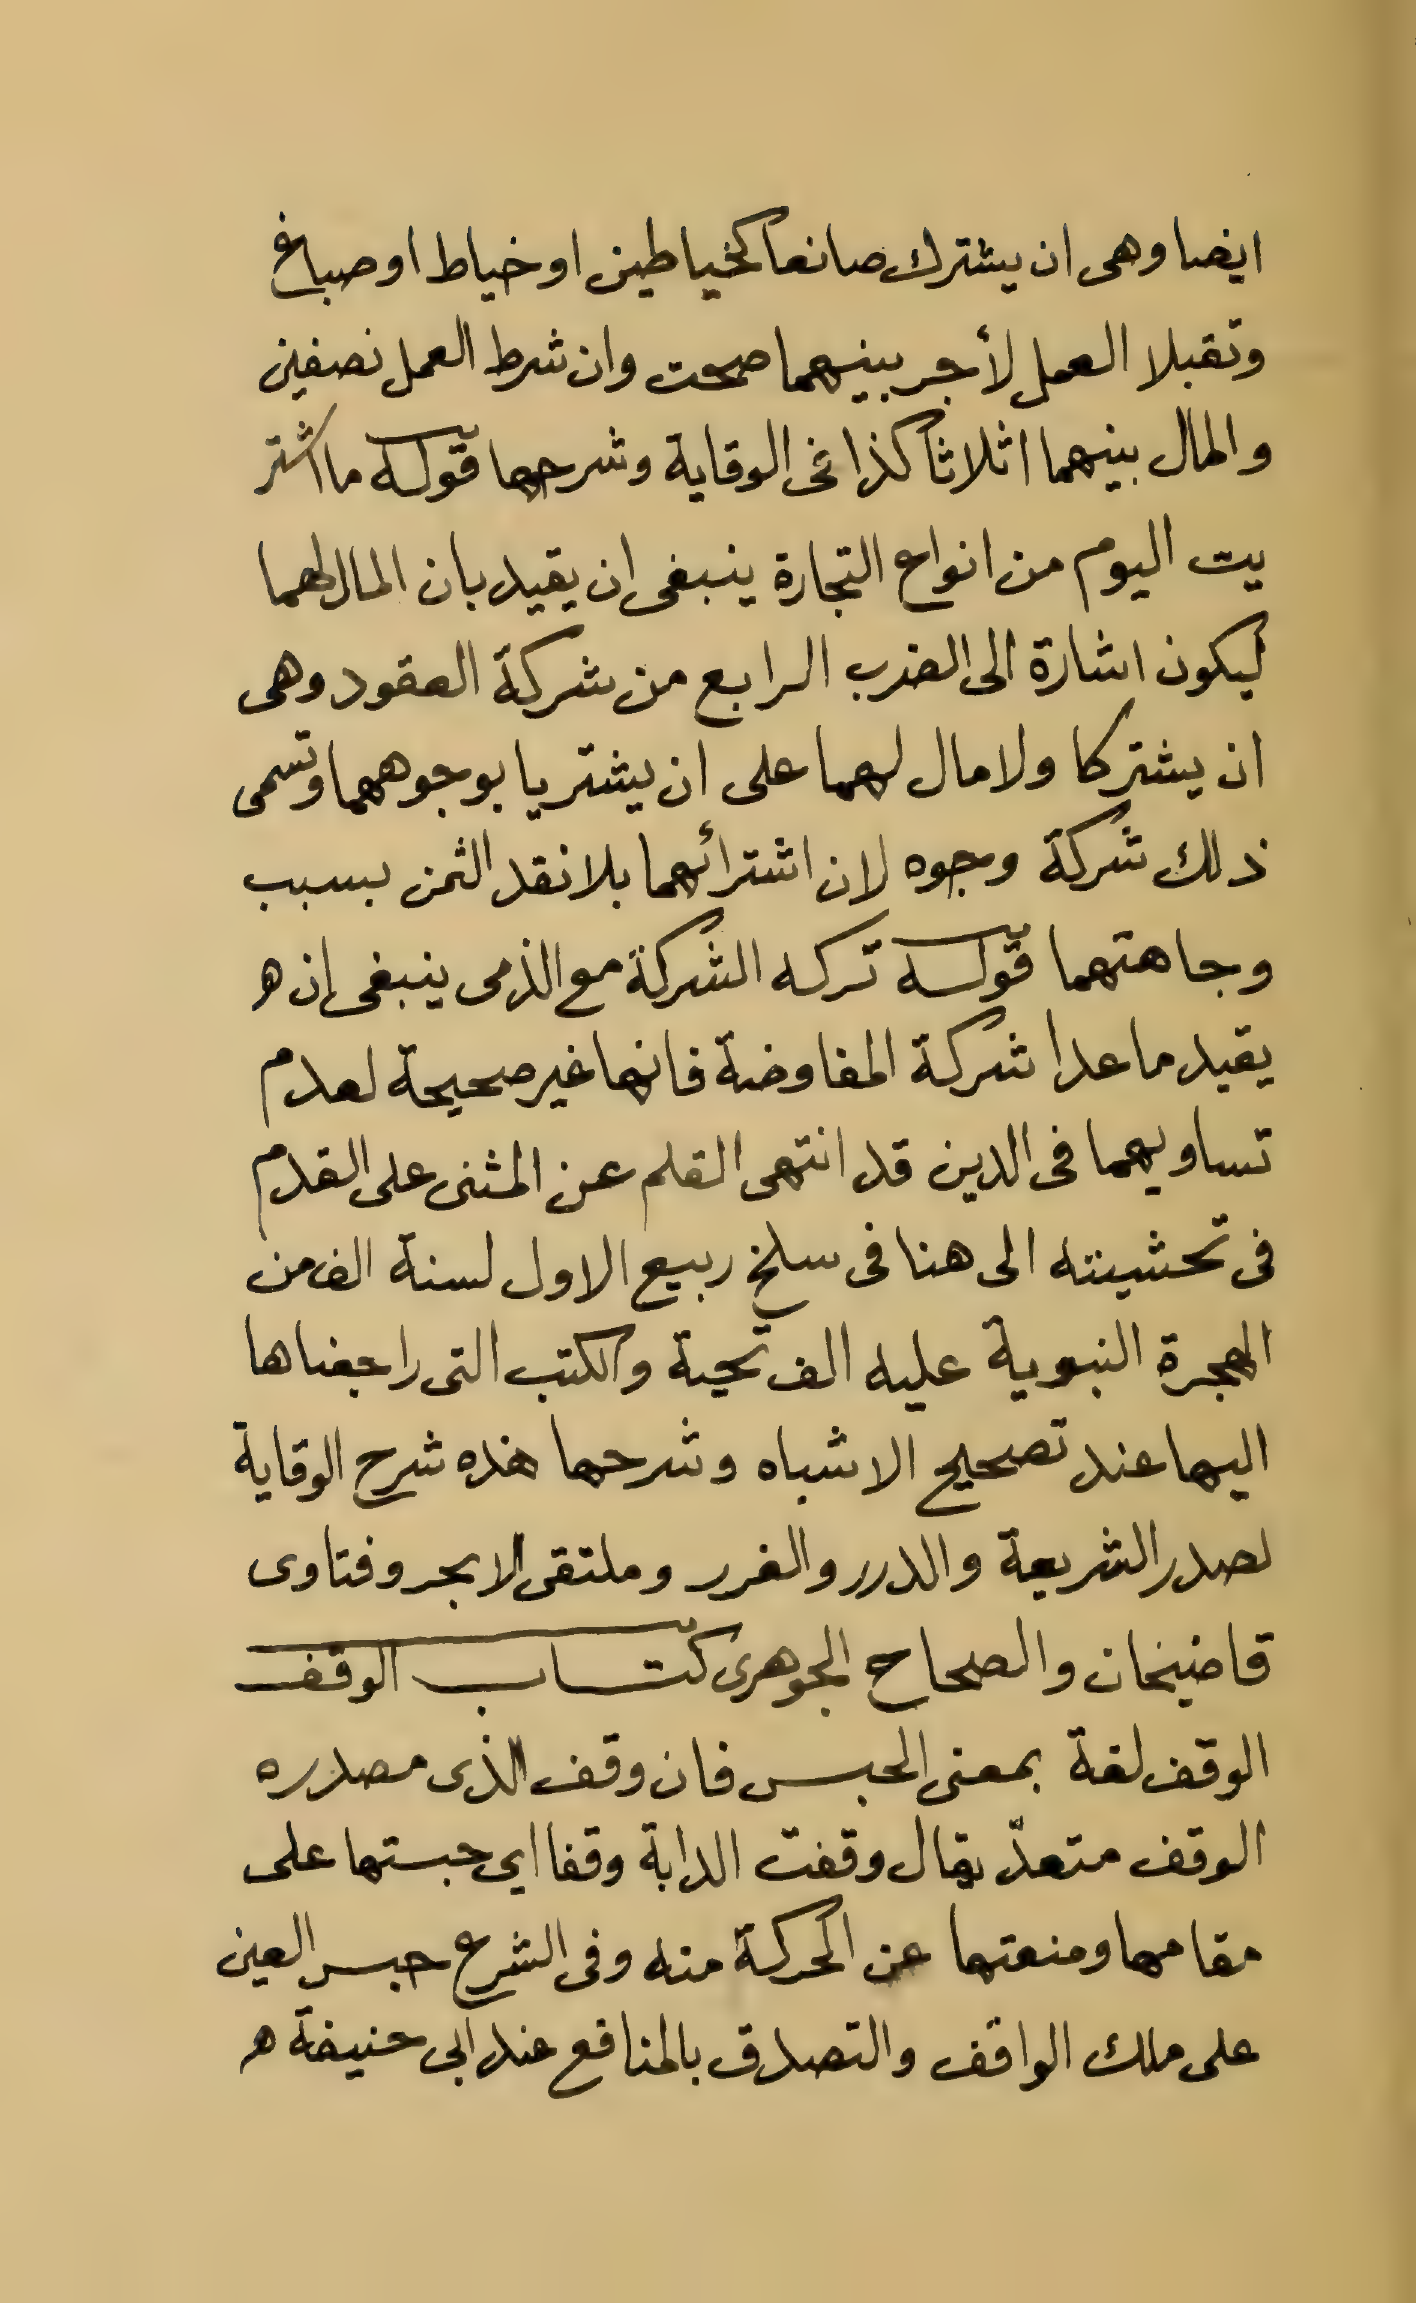 ايضا وهى ان يشترك صانعا كخياطين او خياط او صباغ
وتقبلا العمل لأجر بينهما صحت وان شرط العمل نصفين
والمال بينهما اثلاثا كذا فى الوقاية وشرحها قوله ما اشتر
يت اليوم من انواع التجارة ينبغى ان يقيد بان المال لهما
ليكون اشارة الى الضرب الرابع من شركة العقود وهى
ان يشتركا ولا مال لهما على ان يشتريا بوجوههما وتسمى
ذلك شركة وجوه لان اشترائهما بلا نقد الثمن بسبب
وجاهتهما قوله تركه الشركة مع الذمى ينبغى ان ه
يقيد ما عدا شركة المفاوضة فانها غير صحيحة لعدم
تساويهما فى الدين قد انتهى القلم عن المثنى على القدم
فى تحشيته الى هنا فى سلخ ربيع الاول لسنة الف من
الهجرة النبوية عليه الف تحية والكتب التى راجعناها
اليها عند تصحيح الاشباه وشرحها هذه شرح الوقاية
لصدر الشريعة والدرر والغرر وملتقى الابحر وفتاوى
قاضيخان والصحاح الجوهرى كتاب الوقف
الوقف لغة بمعنى الحبس فان وقف الذى مصدره
الوقف متعدّ يقال وقفت الدابة وقفا اى حبستها على
مقامها ومنعتها عن الحركة منه وفى الشرع حبس العين
على ملك الواقف والتصدق بالمنافع عند ابى حنيفة ه